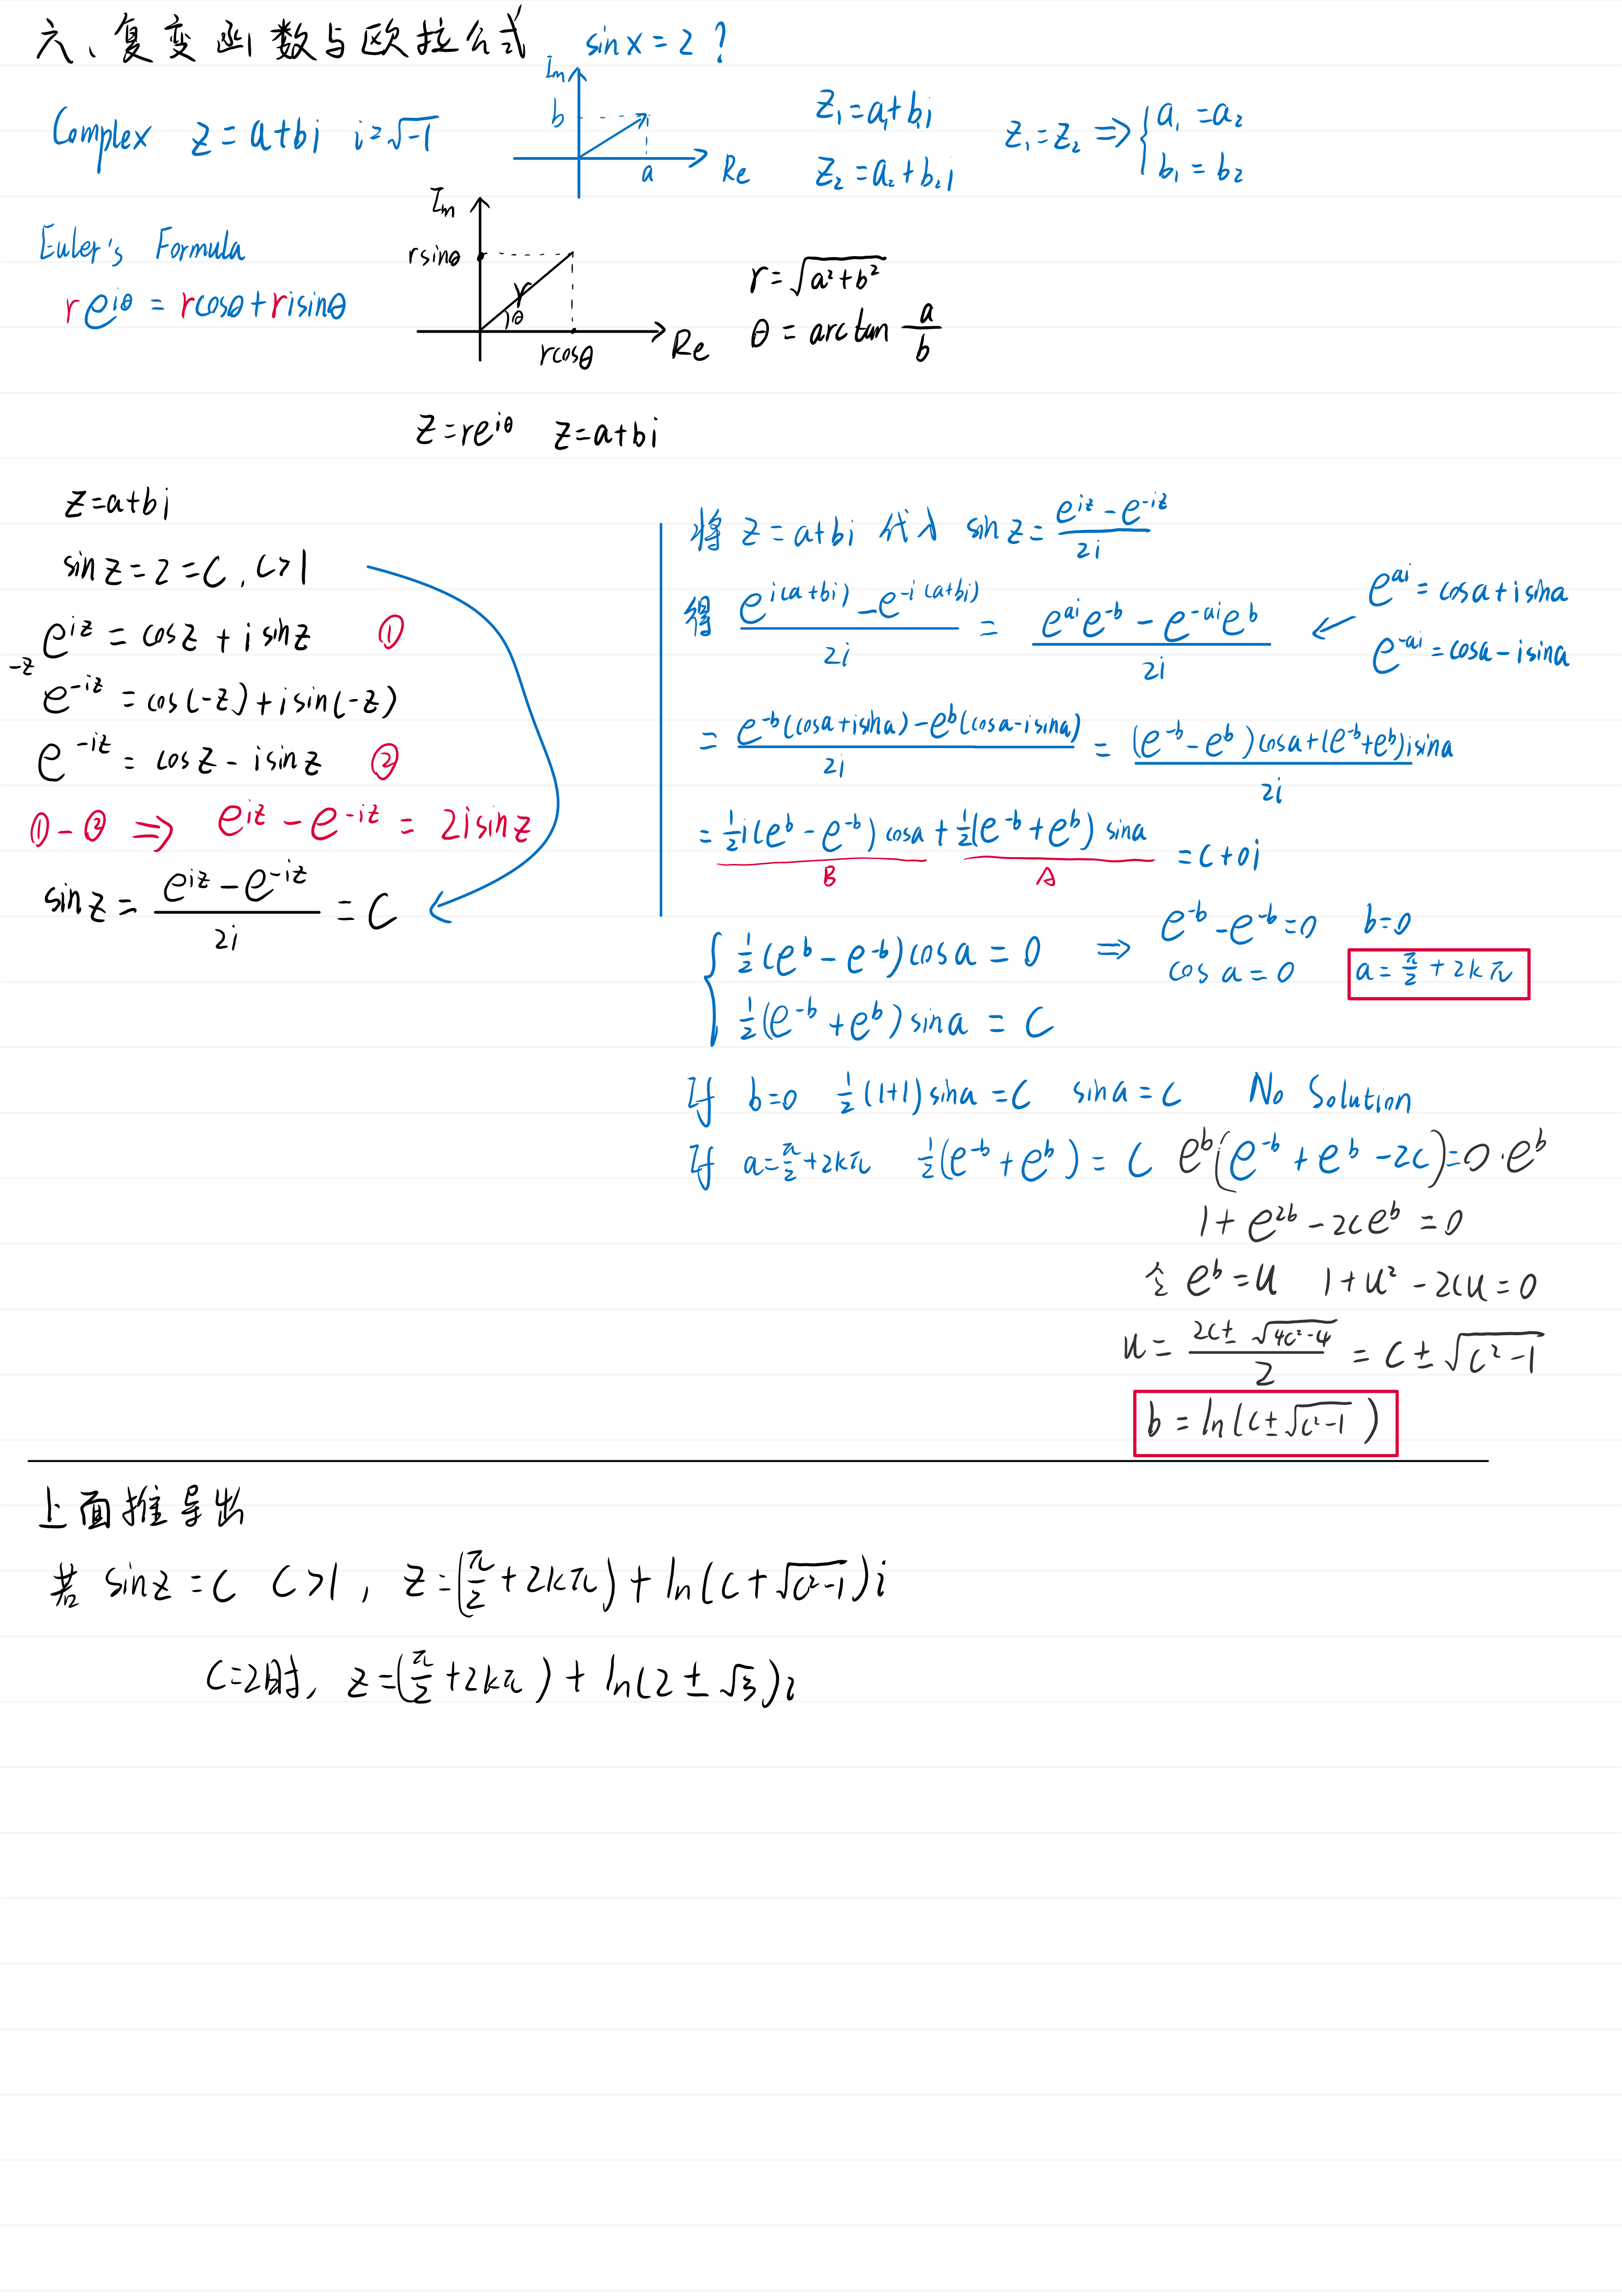 六、复变函数与欧拉公式 sinx = 2 ?
Complex z = a+bi i=√-1
Im
b
a
Re
z₁=a₁+b₁i
z₂=a₂+b₂i
z₁=z₂ ⇒ { a₁=a₂
b₁=b₂
Euler's Formula
re^{iθ} = rcosθ+risinθ
Im
rsinθ
r
θ
rcosθ
Re
r=√(a²+b²)
θ = arctan a/b
z=re^{iθ} z=a+bi
z=a+bi
sinz=2=C, C>1
e^{iz} = cosz + isinz ①
-z
e^{-iz} = cos(-z)+isin(-z)
e^{-iz} = cosz - isinz ②
①-② ⇒ e^{iz} - e^{-iz} = 2isinz
sinz = (e^{iz} - e^{-iz})/2i = C
将 z=a+bi 代入 sinz = (e^{iz} - e^{-iz})/2i
得 (e^{i(a+bi)} - e^{-i(a+bi)})/2i = (e^{ai}e^{-b} - e^{-ai}e^{b})/2i ←
e^{ai} = cosa+isina
e^{-ai} = cosa-isina
= (e^{-b}(cosa+isina) - e^{b}(cosa-isina))/2i = ((e^{-b} - e^{b})cosa+(e^{-b}+e^{b})isina)/2i
= ½i(e^{b} - e^{-b})cosa + ½(e^{-b}+e^{b}) sina = C+0i
B A
{ ½(e^{b} - e^{-b})cosa = 0 ⇒ e^{-b} - e^{-b}=0 b=0
cosa=0 a=π/2+2kπ
½(e^{-b}+e^{b})sina = C
If b=0 ½(1+1)sina=C sina=C No Solution
If a=π/2+2kπ ½(e^{-b}+e^{b}) = C e^{b}(e^{-b}+e^{b}-2C)=0·e^{b}
1+e^{2b}-2Ce^{b}=0
令 e^{b}=u 1+u²-2Cu=0
u = (2C±√(4C²-4))/2 = C±√(C²-1)
b = ln(C±√(C²-1))
上面推导出
若 sinz=C C>1, z=(π/2+2kπ)+ln(C+√(C²-1))i
C=2时, z=(π/2+2kπ)+ln(2±√3)i